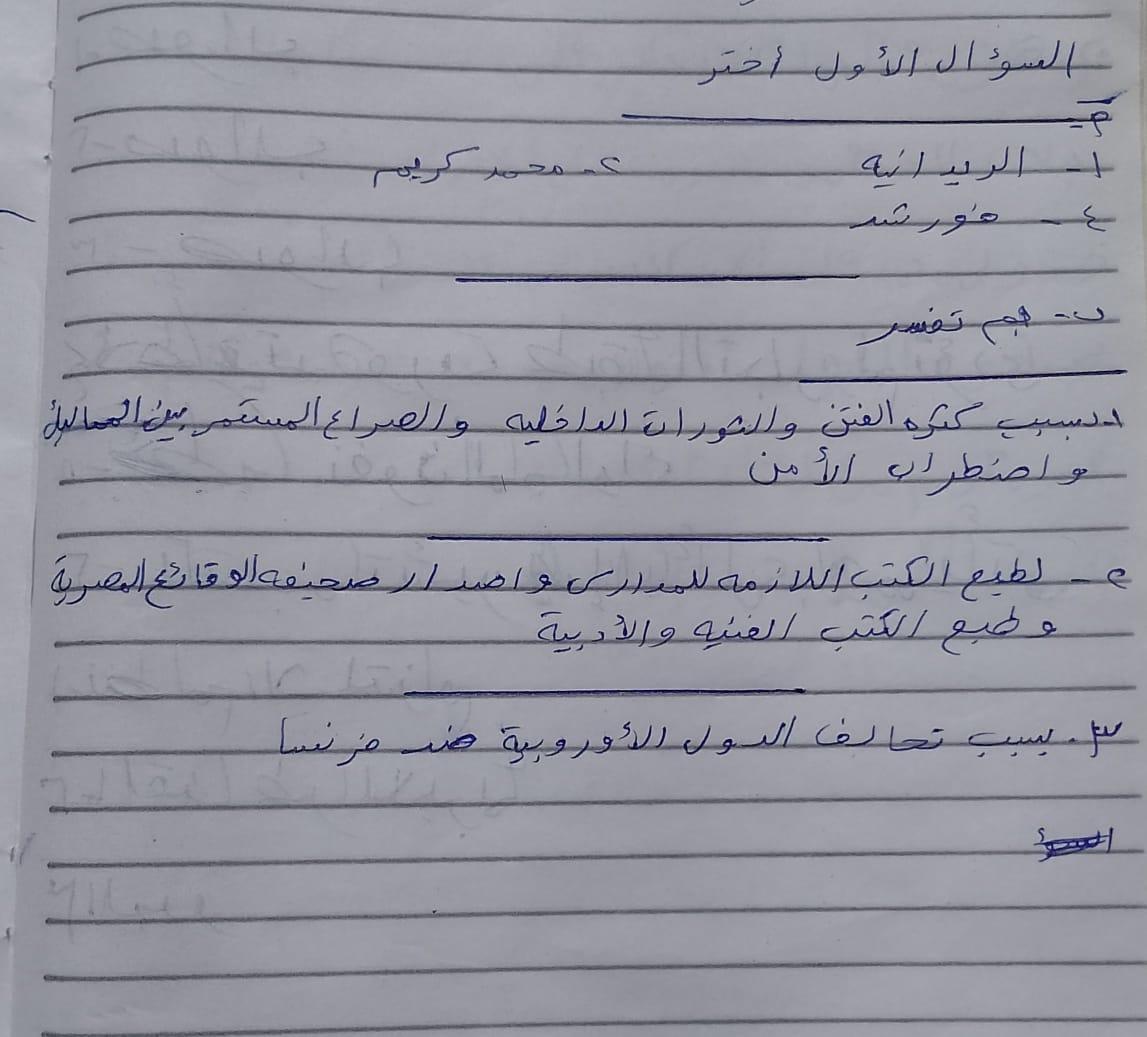 السؤال الأول أختر
أ-
١- الريدانيه ٢- محمد كريم
٤- خورشد
ب- بم تفسر
١- بسبب كثره الفتن والثورات الداخليه والصراع المستمر بين المماليك
واضطراب الأمن
٢- لطبع الكتب اللازمه للمدارس واصدار صحيفه الوقائع المصرية
وطبع الكتب الفنيه والأدبية
٣- بسبب تحالف الدول الأوروبية ضد فرنسا